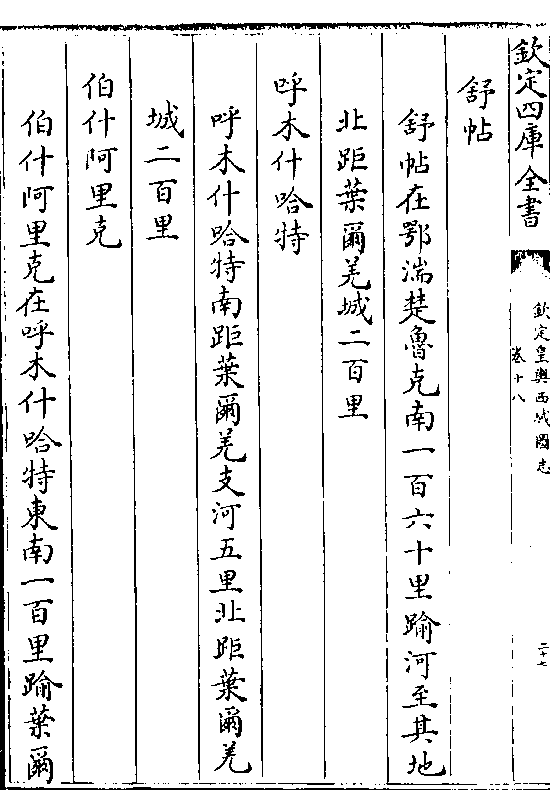 欽定四庫全書
欽定皇輿西域圖志
卷十八
二十七
舒帖
舒帖在鄂湍楚魯克南一百六十里踰河至其地
北距葉爾羌城二百里
呼木什哈特
呼木什哈特南距葉爾羌支河五里北距葉爾羌
城二百里
伯什阿里克
伯什阿里克在呼木什哈特東南一百里踰葉爾